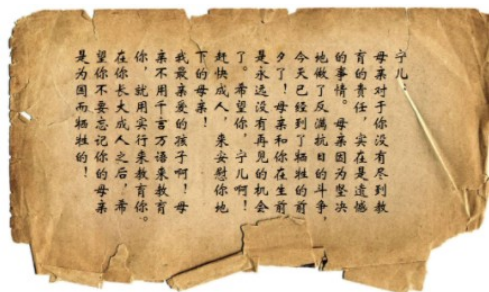 宁儿，
母亲对于你没有尽到教
育的责任，实在是遗憾
的事情。母亲因为坚决
地做了反满抗日的斗争，
今天已经到了牺牲的前
夕了！母亲和你在生前
是永远没有再见的机会
了。希望你，宁儿啊！
赶快成人，来安慰你地
下的母亲！
我最亲爱的孩子啊！母
亲不用千言万语来教育
你，就用实行来教育你。
在你长大成人之后，希
望你不要忘记你的母亲
是为国而牺牲的！